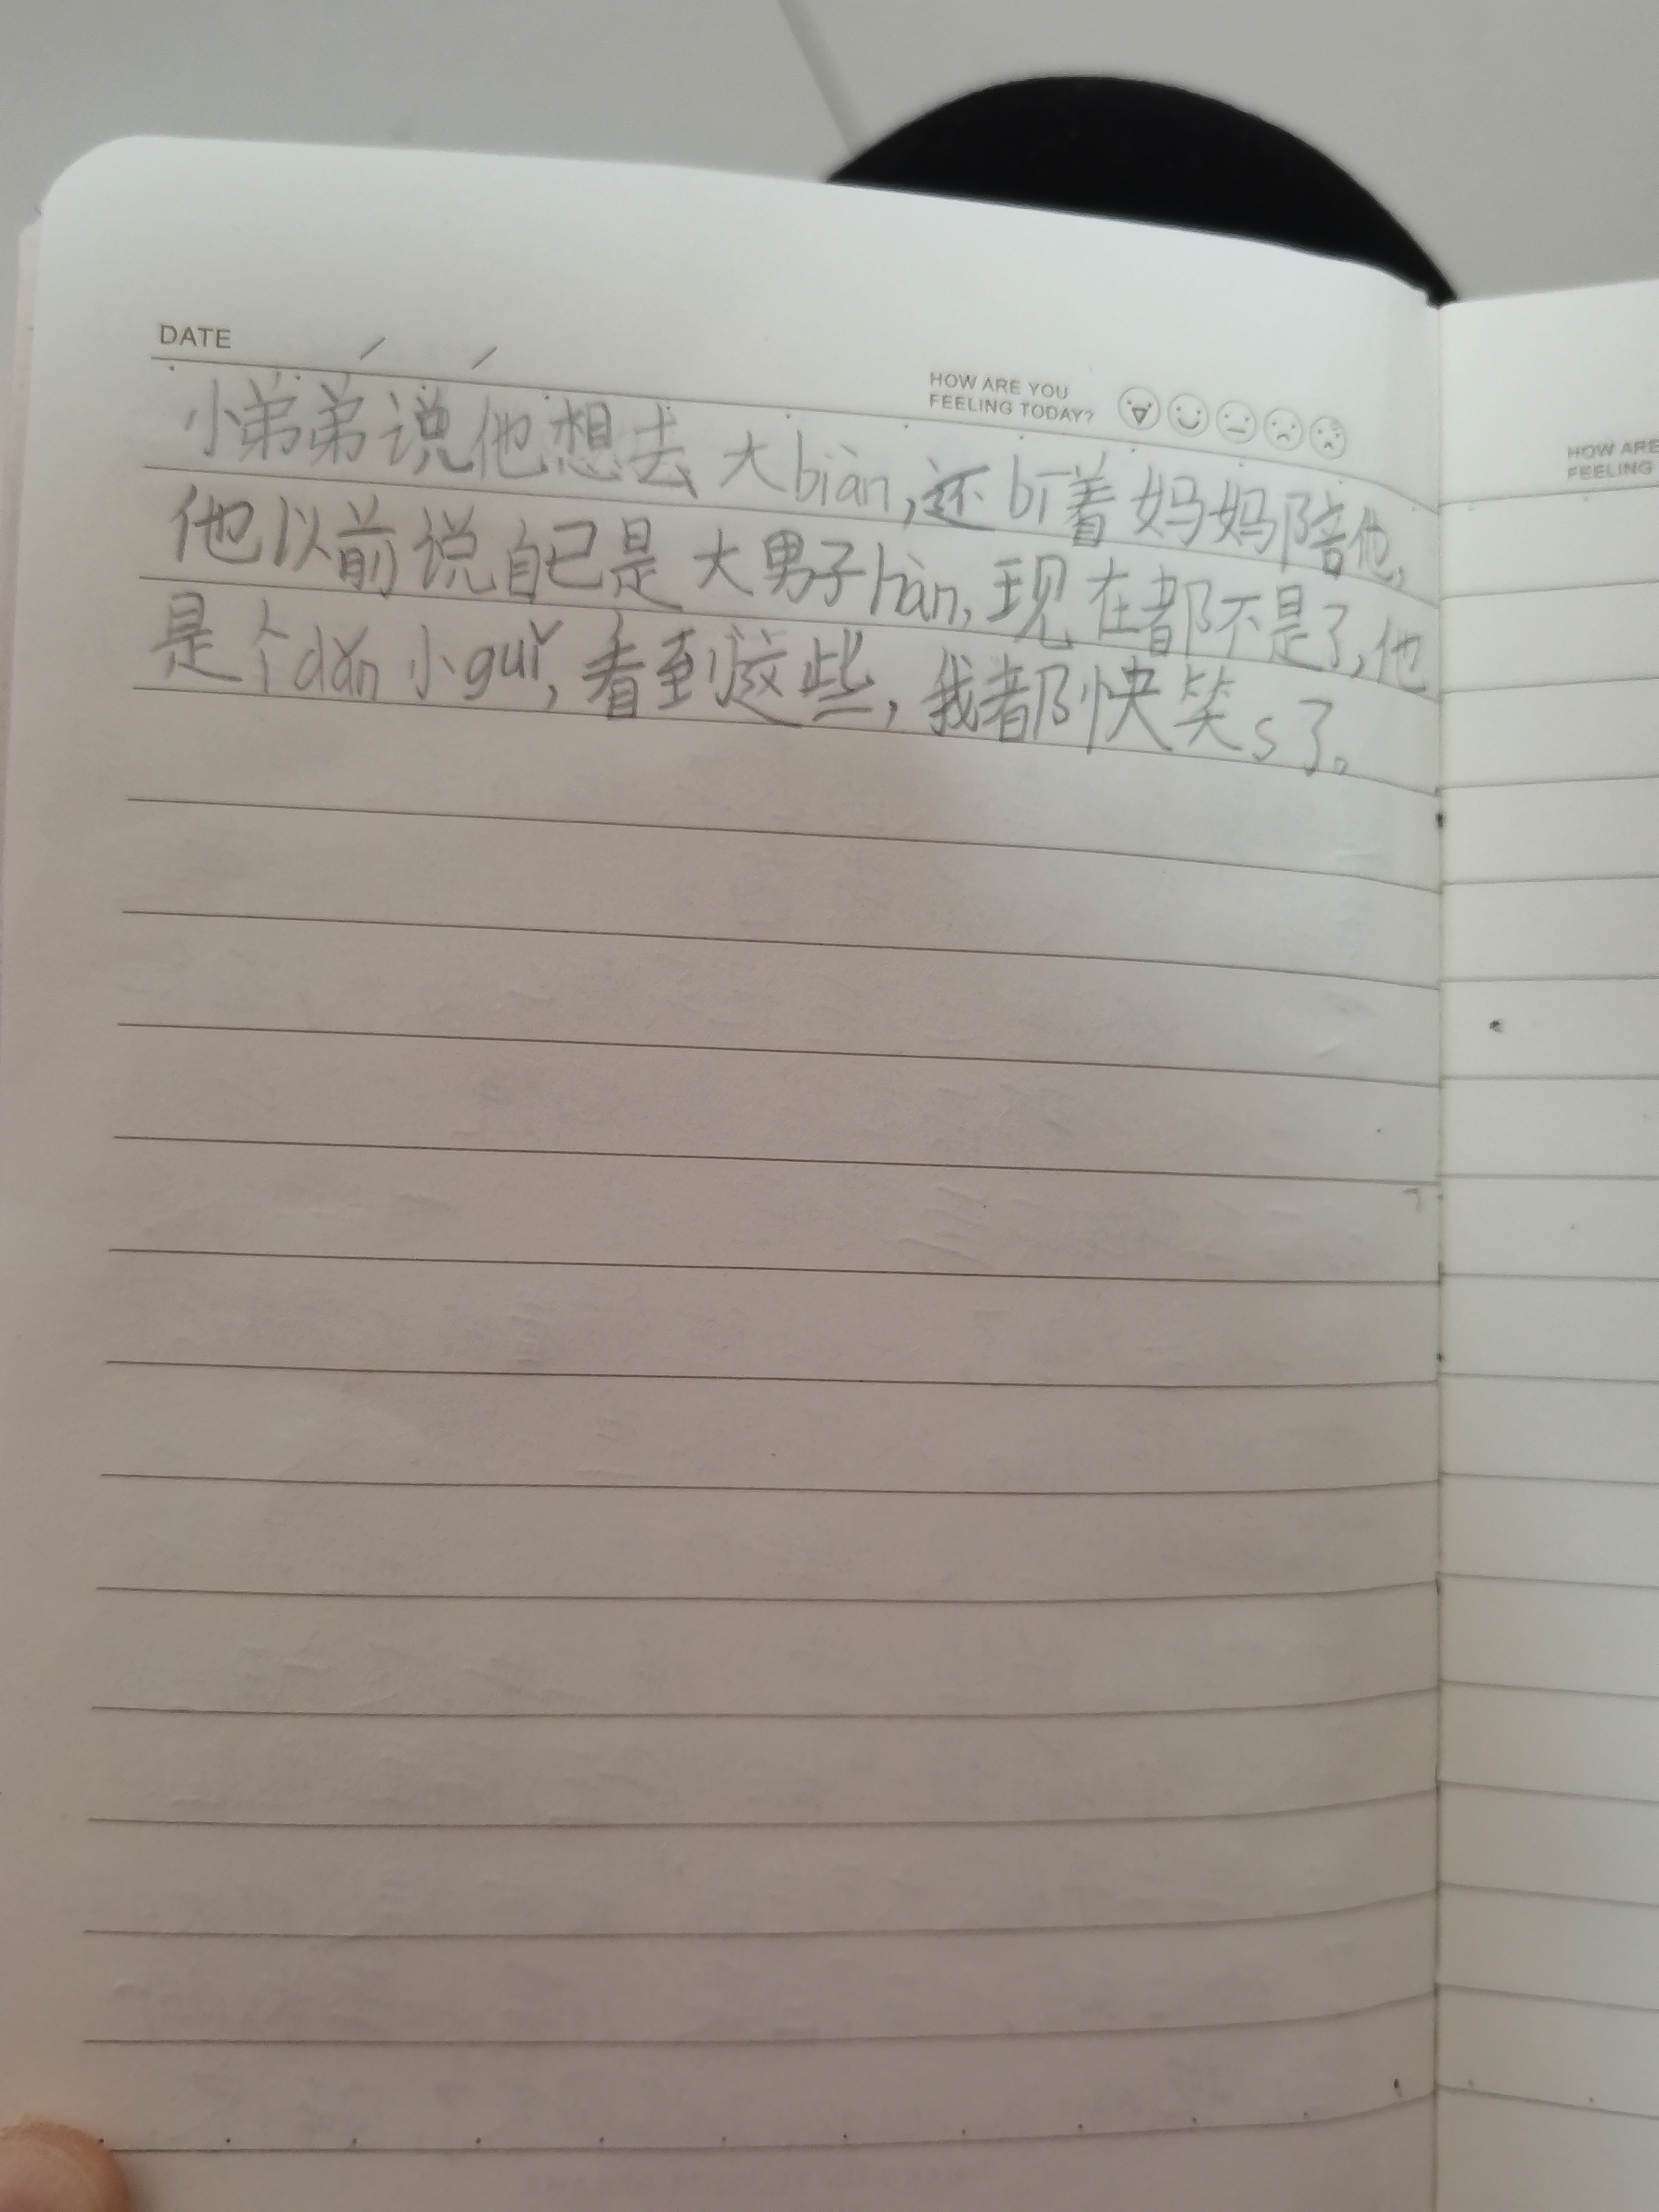 DATE / /
HOW ARE YOU
FEELING TODAY?
小弟弟说他想去大biàn,还bī着妈妈陪他,
他以前说自己是大男子hàn,现在都不是了,他
是个dǎn小guǐ,看到这些,我都快笑s了。
HOW ARE
FEELING